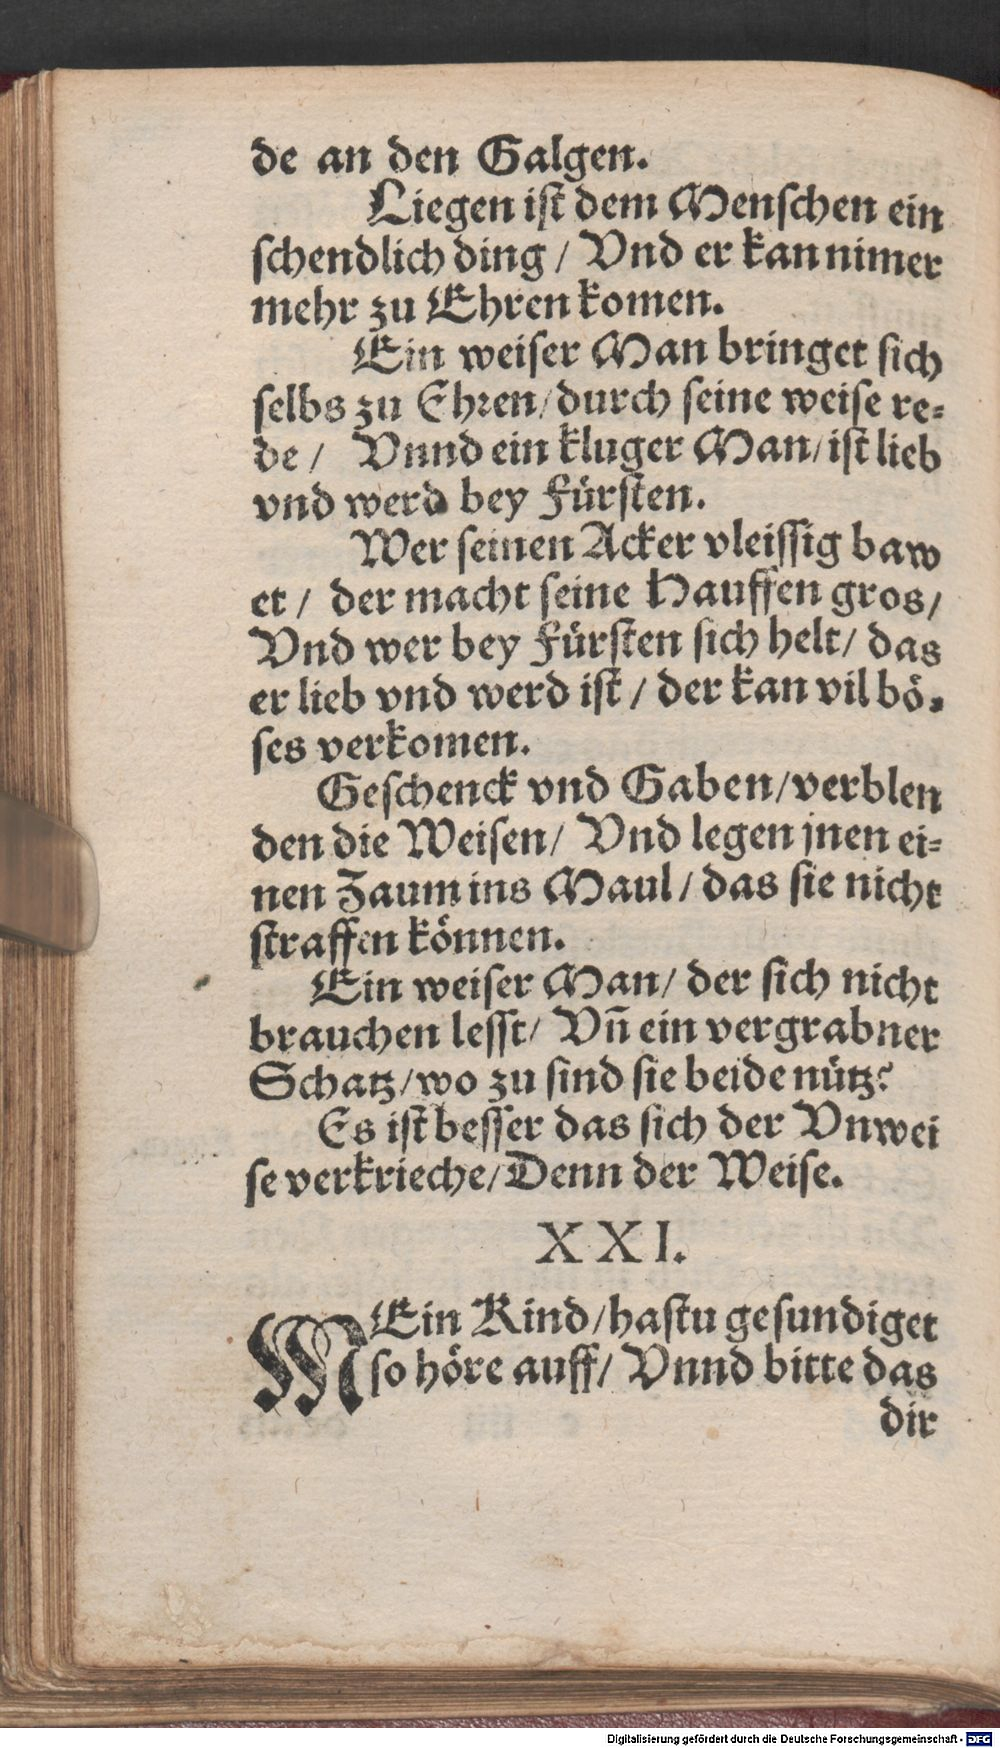 de an den Galgen.
Liegen iſt dem Menſchen ein
ſchendlich ding / Vnd er kan nimer
mehr zu Ehren komen.
Ein weiſer Man bringet ſich
ſelbs zu Ehren / durch ſeine weiſe re⸗
de / Vnnd ein kluger Man / iſt lieb
vnd werd bey Fürſten.
Wer ſeinen Acker vleiſſig baw
et / der macht ſeine Hauffen gros /
Vnd wer bey Fürſten ſich helt / das
er lieb vnd werd iſt / der kan vil bö⸗
ſes verkomen.
Geſchenck vnd Gaben / verblen
den die Weiſen / Vnd legen jnen ei⸗
nen Zaum ins Maul / das ſie nicht
ſtraffen können.
Ein weiſer Man / der ſich nicht
brauchen leſſt / Vñ ein vergrabner
Schatz / wo zu ſind ſie beide nütz?
Es iſt beſſer das ſich der Vnwei
ſe verkrieche / Denn der Weiſe.
XXI.
MEin Kind / haſtu geſundiget
ſo höre auff / Vnnd bitte das
dir
Digitalisierung gefördert durch die Deutsche Forschungsgemeinschaft - DFG